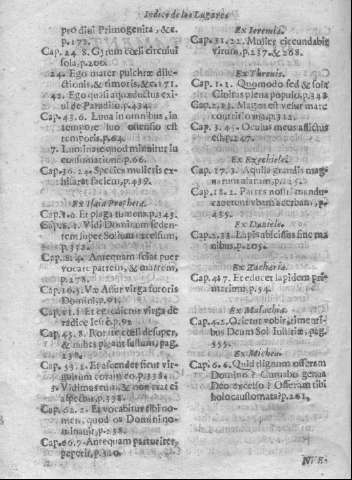 Indice de los Lugares
pro diui Primogenita, &c.
p.173.
Cap. 24. 8. Gyrum cœli circuiui
sola, p.200.
24. Ego mater pulchræ dile-
ctionis, & timoris, &c. 171.
42. Ego quasi aquæductus exi-
ui de Paradiso, p.434.
Cap. 43. 6. Luna in omnibus, in
tempore suo ostensio est
temporis, p.64.
7. Luminare quod minuitur in
consumatione, p.66.
Cap. 36. 24. Species mulieris ex-
hilarat faciem, p.439.
Ex Isaia Propheta.
Et plaga tumens, p.343.
Cap. 6. 1. Vidi Dominum seden-
tem super Solium excelsum,
p.352.
Cap. 8. 4. Antequam sciat puer
vocare patrem, & matrem,
p.278.
Cap. 10. 5. Væ Assur virga furoris
Domini, p.91.
Cap. 11. 1. Et egredietur virga de
radice Iesse, p.92
Cap. 45. 8. Rorate cœli desuper,
& nubes pluant iustum, pag.
238.
Cap. 53. 2. Et ascendet sicut vir-
gultum coram eo, p.338.
Vidimus eum, & non erat ei
aspectus, p.338.
Cap. 62. 2. Et vocabitur tibi no-
men, quod os Domini no-
minauit, p.238.
Cap. 66. 7. Antequam parturiret,
peperit, p.320.
Ex Ieremia.
Cap. 31. 22. Mulier circundabit
virum, p.237. & 268.
Ex Threnis.
Cap. 1. 1. Quomodo sed & sola
Ciuitas plena populo, p.348
Cap. 2. 13. Magna est velut mare
contritio tua, p.312.
Cap. 3. 49. Oculus meus afflictus
est, p.247.
Ex Ezechiele.
Cap. 17. 3. Aquila grandis mag-
narum alarum, p.125.
Cap. 18. 2. Patres nostri mandu-
cauerunt vbam acerbam, p.
459.
Ex Daniele.
Lapis abscissus sine ma
nibus, p.205.
Ex Zacharia.
Cap. 4. 7. Et educet lapidem pri-
marium, p.54.
Ex Malachia.
Cap. 4. 2. Orietur vobis timenti-
bus Deum Sol Iustitiæ, pag.
359.
Ex Michea.
Cap. 6. 6. Quid dignum offeram
Domino? Curuabo genua
Deo excelso? Offeram tibi
holocaustomata? p.261,